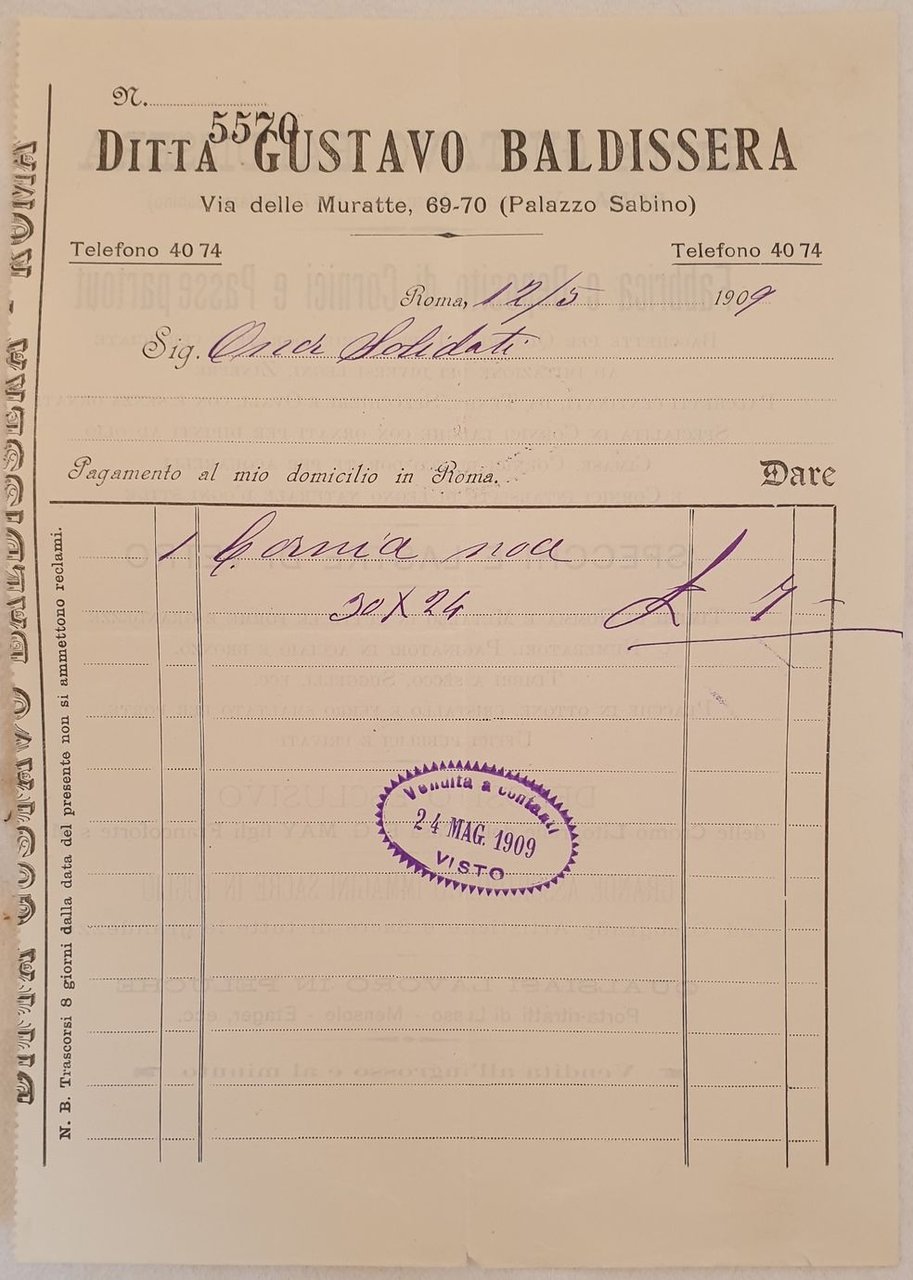 N.
5570
DITTA GUSTAVO BALDISSERA
Via delle Muratte, 69-70 (Palazzo Sabino)
Telefono 40 74 Telefono 40 74
Roma, 12/5 1909
Sig. Solidati
Pagamento al mio domicilio in Roma. Dare
1 Cornia noce
30 X 24 £ 7 -
Vendita a contanti
24 MAG. 1909
VISTO
N. B. Trascorsi 8 giorni dalla data del presente non si ammettono reclami.
DITTA GUSTAVO BALDISSERA - ROMA